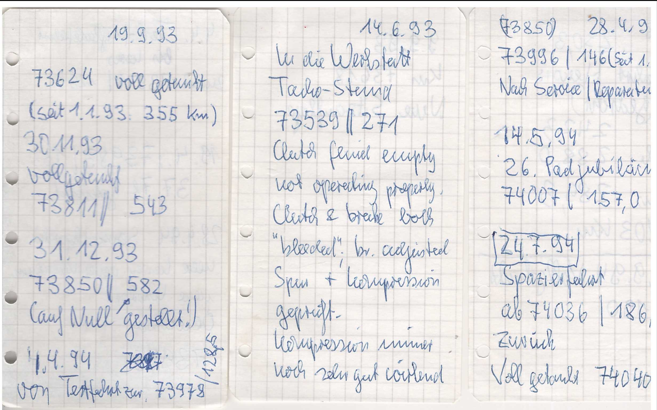 19.9.93
73624 voll getankt
(seit 1.1.93: 355 km)
30.11.93
vollgetankt
73811 || 543
31.12.93
73850 || 582
(auf Null gestellt!)
1.4.94
von Testfahrt zur. 73978 / 128,5
14.6.93
In die Werkstatt
Tacho-Stand
73539 || 271
Clutch fluid empty
not operating properly.
Clutch & brake both
"bleeded", br. adjusted
Spur + Kompression
geprüft.
Kompression immer
noch sehr gut
(73850) 28.4.9
73996 | 146 (seit 1.
Nach Service / Reparatur
14.5.94
26.
74007 | 157,0
24.7.94
Spazierfahrt
ab 74036 | 186,
Zurück
Voll getankt 74040